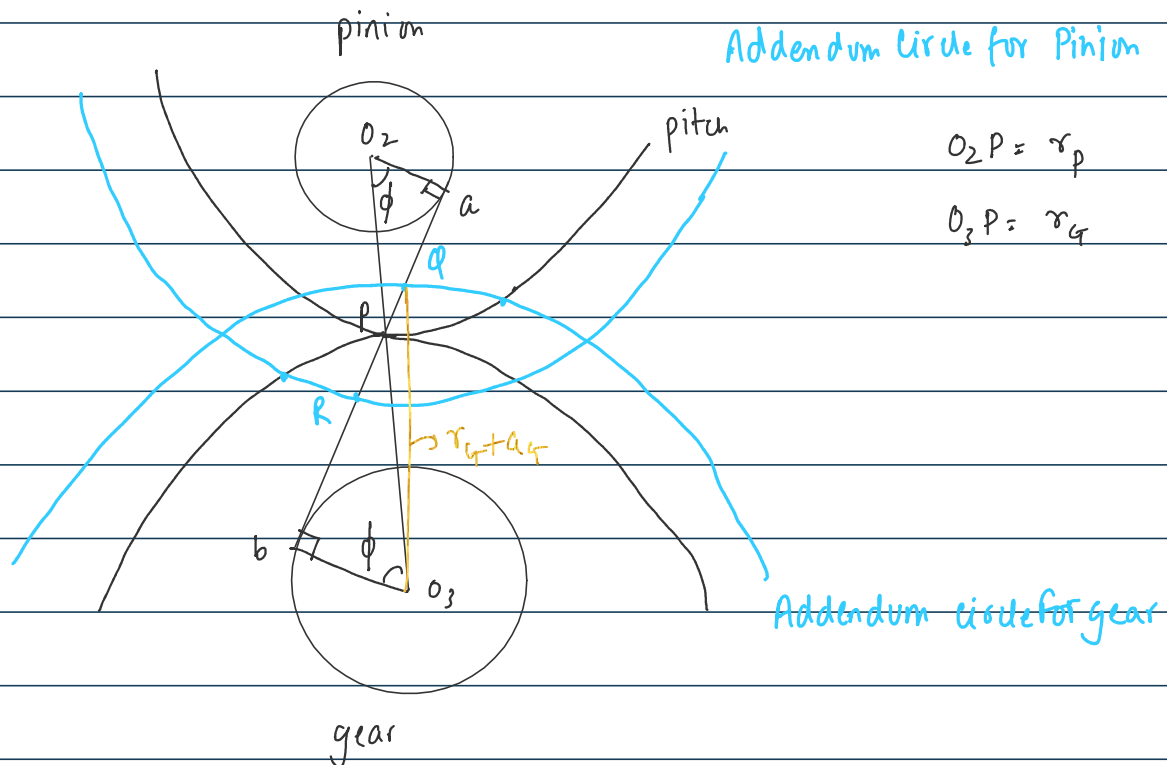 pinion
Addendum Circle for Pinion
O2
pitch
O2P = rp
ϕ
a
O3P = rG
Q
P
R
rG+aG
b
ϕ
O3
Addendum circle for gear
gear